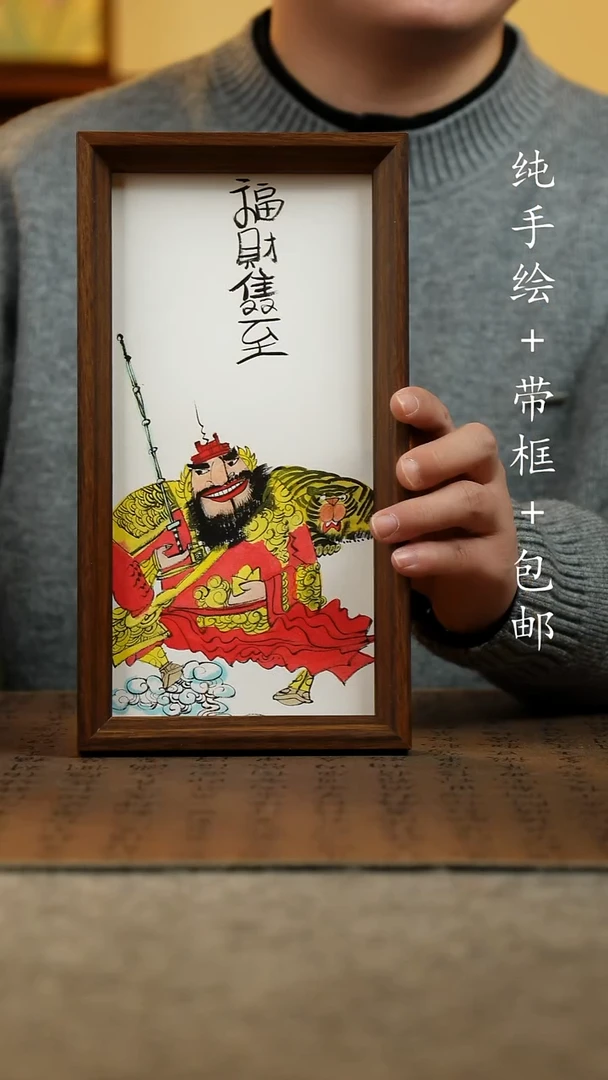 福財雙至
纯手绘+带框+包邮